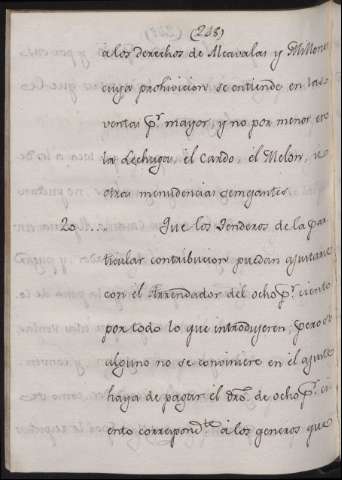 (268)
a los derechos de Alcavalas y Millones
cuya prohivicion se entiende en las
ventas p.r mayor, y no por menor en
la Lechuga, el Cardo, el Melon, u
otras menudencias semejantes.
2o.... Que los Tenderos de la par
ticular contribucion puedan ajustarse
con el Arrendador del ocho p.r ciento
por todo lo que introdujeren; pero si
alguno no se conviniere en el ajuste
haya de pagar el dro. de ocho p.r ci
ento correspond.te a los generos que